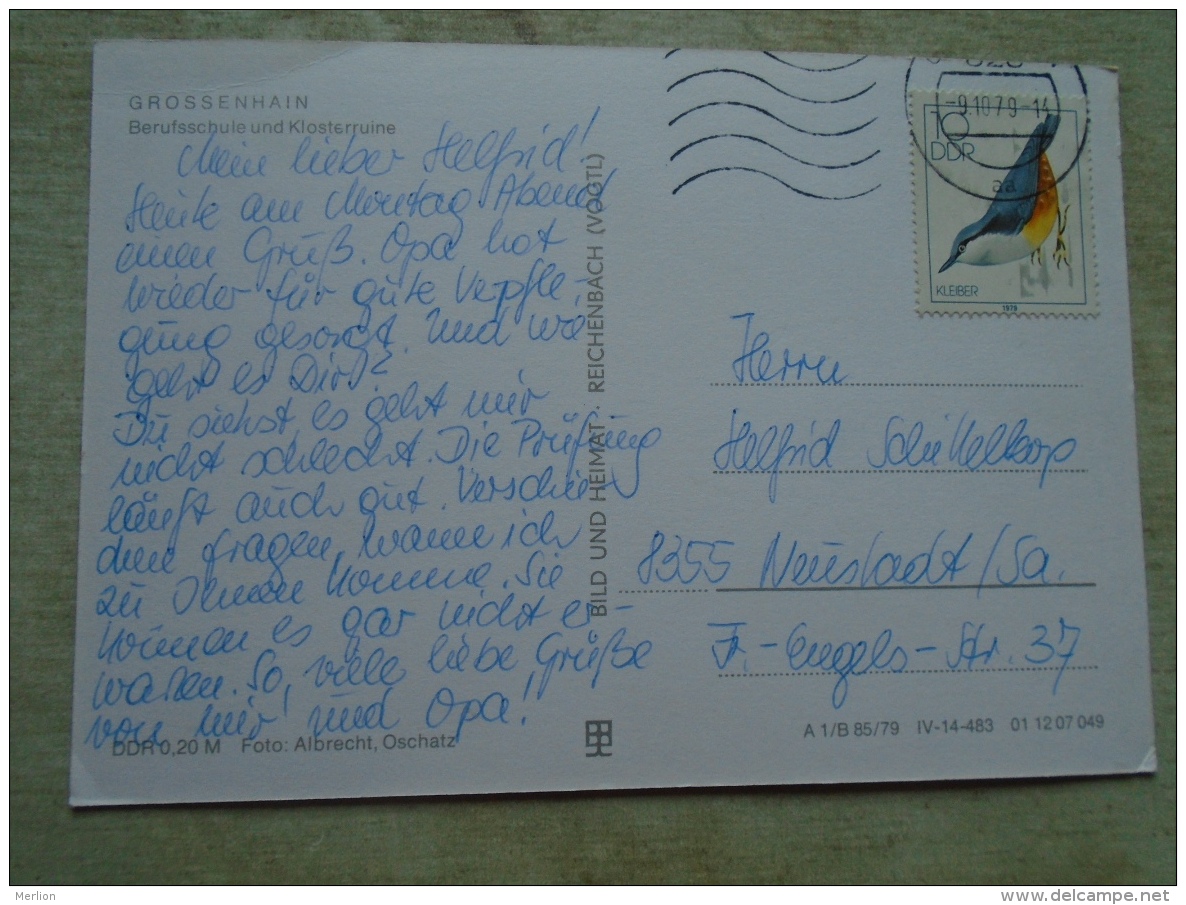 GROSSENHAIN
Berufsschule und Klosterruine
Mein lieber Helfrid!
Heute am Montag Abend
einen Gruß. Opa hat
wieder für gute Verpfle-
gung gesorgt. Und wie
geht es Dir?
Du siehst, es geht mir
nicht schlecht. Die Prüfung
läuft auch gut. Verschie-
dene fragen, wann ich
zu Ihnen komme. Sie
können es gar nicht er-
warten. So, viele liebe Grüße
von mir und Opa!
DDR 0,20 M Foto: Albrecht, Oschatz
BILD UND HEIMAT REICHENBACH (VOGTL)
-9.10.79-14
aa
10
DDR
KLEIBER
1979
Herrn
Helfrid
8355 Neustadt/Sa.
Fr.-Engels-Str. 37
A 1/B 85/79 IV-14-483 01 12 07 049
Merlion
www.delcampe.net